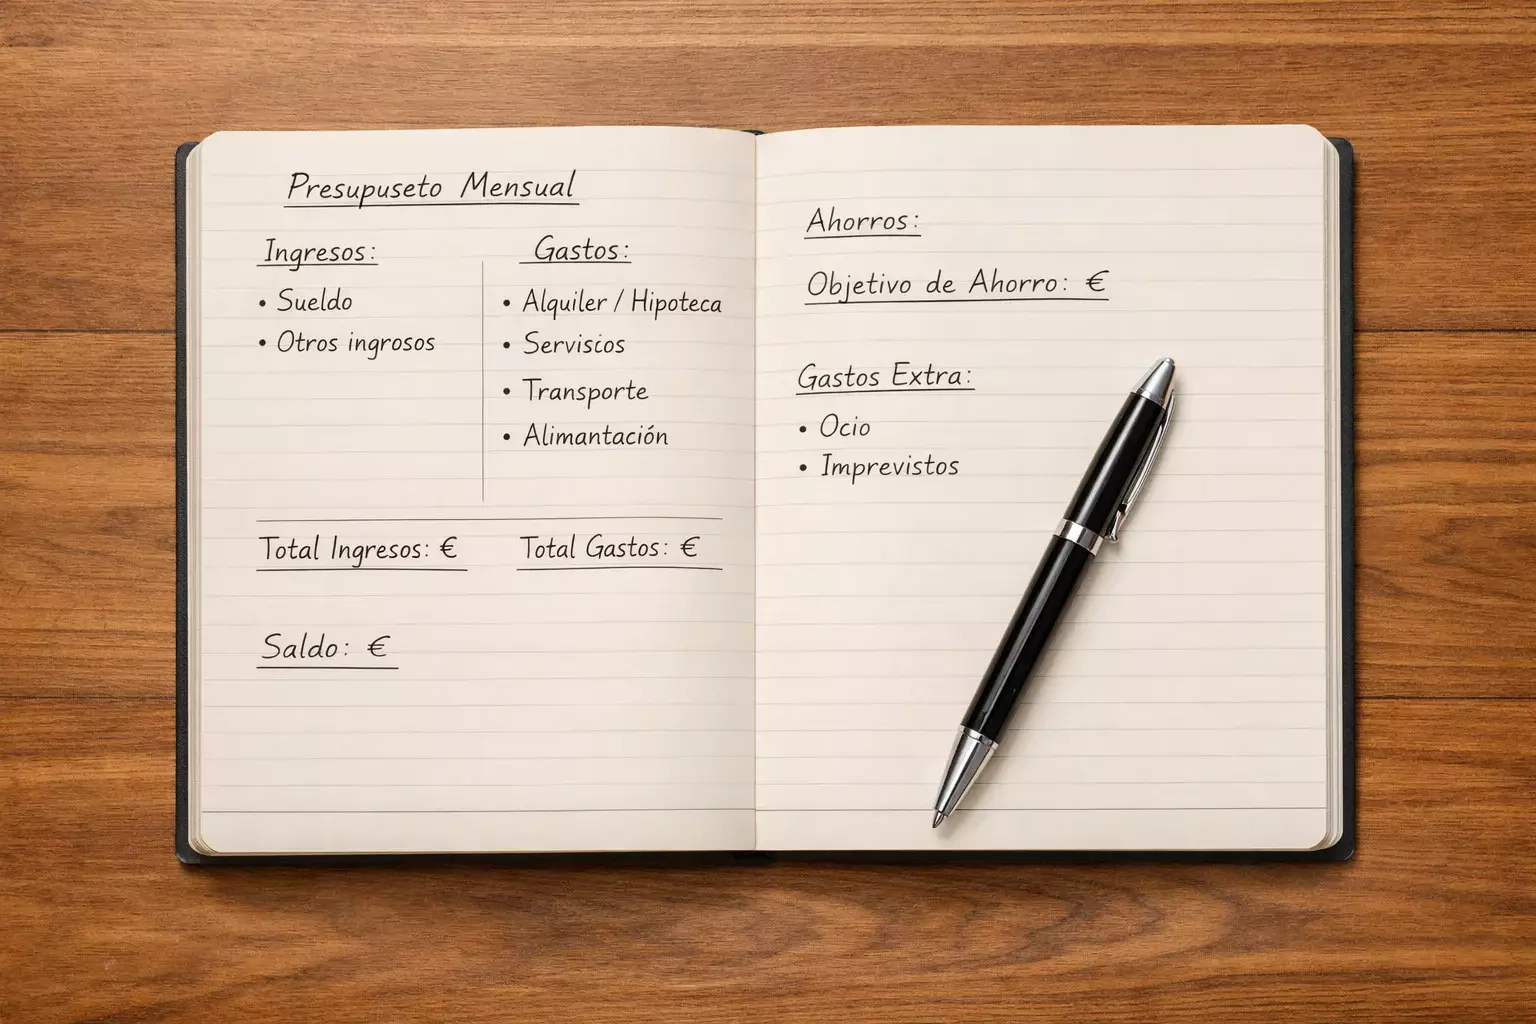 Presupuseto Mensual
Ingresos:
• Sueldo
• Otros ingrosos
Gastos:
• Alquiler / Hipoteca
• Servisios
• Transporte
• Alimantación
Total Ingresos: €
Total Gastos: €
Saldo: €
Ahorros:
Objetivo de Ahorro: €
Gastos Extra:
• Ocio
• Imprevistos